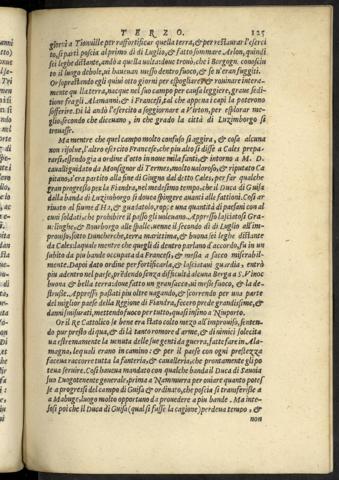 TERZO. 125
gierià a Tionuille per raffortificar quella terra, & per restaurar l'eserci
to, si partì poscia al primo dì di Luglio, & fatto sommare Arlon, quindi
sei leghe distante, andò a quella volta: doue trouò, che i Borgogn. conosciu
to il luogo debole, ui haueuan messo dentro fuoco, & se n'eran fuggiti.
Or soprastando egli quiui otto giorni per espogliare & rouinare intera-
mente quella terra, nacque nel suo campo per causa leggiere, graue sedi
tione fra gli Alemanni, & i Francesi, tal che appena i capi la poterono
sofferire. Di là andò l'esercito a soggiornare a Virton, per esplorar me-
glio, secondo che diceuano, in che grado la città di Luzimborgo si
trouasse.
Ma mentre che quel campo molto confuso si aggira, & cosa alcuna
non risolue, l'altro esercito Francese, che piu alto si disse a Cales prepa-
rarsi, essendo gia a ordine d'otto in noue mila fanti, & intorno a M. D.
caualli, guidato da Monsignor di Termes, molto ualoroso, & riputato Ca
pitano, s'era partito alla fine di Giugno dal detto Cales, per far qualche
gran progresso per la Fiandra, nel medesimo tempo, che il Duca di Guisa
dalla banda di Luzimborgo si douea spingere auanti alle fattioni. Così ar
riuato al fiume d'Ha, & guadatolo, roppe una quantità di paesani con al
cuni soldati, che prohibire il passo gli uoleuano. Appresso lasciatosi Gra-
uelinghe, & Borborgo alle spalle, uenne il secondo dì di Luglio all'im-
prouiso, sotto Duncherche, terra marittima, & buona sei leghe distante
da Cales: laquale mentre che quegli di dentro parlano d'accordo, fu in un
subito da piu bande occupata da Francesi, & messa a sacco miserabil-
mente. Dapoi dato ordine per fortificarla, & lasciatoui guardia, entrò
piu adentro nel paese, prēdendo senza difficultà alcuna Berga a S. Vinoc
buona & bella terra: doue fatto un gran sacco, ui messe fuoco, & la de-
strusse. Appresso passati piu oltre uagando, & scorrendo per una parte
del miglior paese della Regione di Fiandra, fecero prede grandissime, &
danni smisurati, mettendo fuoco per tutto, quasi insino a Niuporto.
Or il Re Cattolico se bene era stato colto mezo all'improuiso, senten-
do pur presto di qua, & di là tanto romore d'arme, & di nimici, sollecita
ua estremamente la uenuta delle sue genti da guerra, fatte fare in Ala-
magna, lequali erano in camino: & per il paese con ogni prestezza
faceua raccorre tutta la fanteria, & caualleria, che prontamente gli po
teua seruire. Così haueua mandato con qualche banda il Duca di Sauoia
suo Luogotenente generale, prima a Nammurra per ouiare quanto potes
se a progressi del campo di Guisa & ordinato, che poscia si transferisse a
a Mabuge, luogo molto opportuno da prouedere a piu bande. Ma inte-
sesi poi che il Duca di Guisa (qual si fusse la cagione) perdeua tempo, &
non